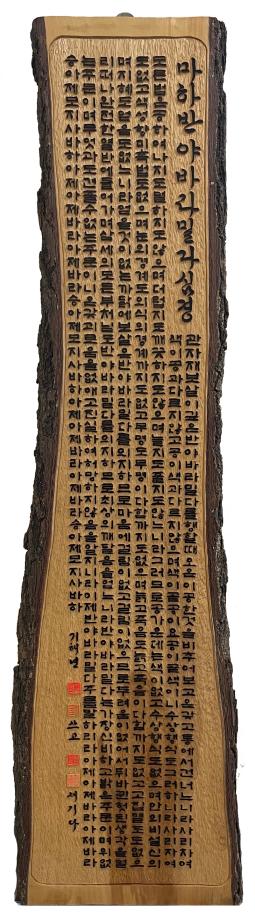 마하반야바라밀다심경
관자재보살이 깊은 반야바라밀다를 행할 때 오온이 공한 것을 비추어 보고 온갖 고통에서 건너느니라 사리자여
색이 공과 다르지 않고 공이 색과 다르지 않으며 색이 곧 공이요 공이 곧 색이니 수상행식도 그러하니라 사리자여
모든 법은 공하여 나지도 멸하지도 않으며 더럽지도 깨끗하지도 않으며 늘지도 줄지도 않느니라 그러므로 공 가운데는 색이 없고 수상행식도 없으며 안이비설신의
도 없고 색성향미촉법도 없으며 눈의 경계도 의식의 경계까지도 없고 무명도 무명이 다함까지도 없으며 늙고 죽음도 늙고 죽음이 다함까지도 없고 고집멸도도 없으
며 지혜도 얻음도 없느니라 얻을 것이 없는 까닭에 보살은 반야바라밀다를 의지하므로 마음에 걸림이 없고 걸림이 없으므로 두려움이 없어서 뒤바뀐 헛된 생각을 멀
리 떠나 완전한 열반에 들어가며 삼세의 모든 부처님도 반야바라밀다를 의지하므로 최상의 깨달음을 얻느니라 반야바라밀다는 가장 신비하고 밝은 주문이며 위없
는 주문이며 무엇과도 견줄 수 없는 주문이니 온갖 괴로움을 없애고 진실하여 허망하지 않음을 알지니라 이제 반야바라밀다주를 말하리라 아제아제 바라아제 바라
승아제 모지사바하 아제아제 바라아제 바라승아제 모지사바하 아제아제 바라아제 바라승아제 모지사바하
기해년 쓰고 새기다